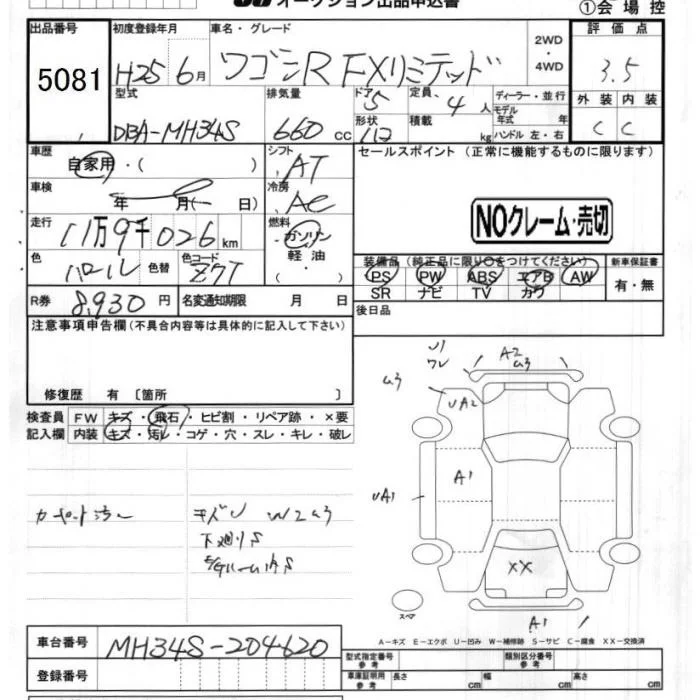 オークション出品申込書
①会場控
出品番号
5081
初度登録年月
H25 6月
車名・グレード
ワゴンR FXリミテッド
2WD
・
4WD
評価点
3.5
外装 内装
C C
型式
DBA-MH34S
排気量
660 cc
ドア
5
形状
定員
4人
積載 kg
ディーラー・並行
モデル年式 年
ハンドル 左・右
車歴
自家用・( )
シフト
AT
セールスポイント (正常に機能するものに限ります)
車検
年 月( 日)
冷房
AC
NOクレーム・売切
走行
11万9千026km
燃料
ガソリン
軽油
・( )
色
パール
色替
色コード
Z7T
装備品 (純正品に限り○をつけてください)
PS PW ABS エアB AW
SR ナビ TV カワ
新車保証書
有・無
R券
8,930円
名変通知期限 月 日
後日品
注意事項申告欄(不具合内容等は具体的に記入して下さい)
修復歴 有 〔箇所 〕
検査員記入欄
FW キズ・飛石・ヒビ割・リペア跡・×要
内装 キズ・汚レ・コゲ・穴・スレ・キレ・破レ
キズU W2 U3
下廻りS
U1
A2
U3
U3
UA2
A1
UA1
XX
A1
スペア
A-キズ E-エクボ U-凹み W-補修跡 S-サビ C-腐食 XX-交換済
車台番号
MH34S-204620
登録番号
型式指定番号 参考
類別区分番号 参考
車庫証明用 参考
長さ cm
幅 cm
高さ cm